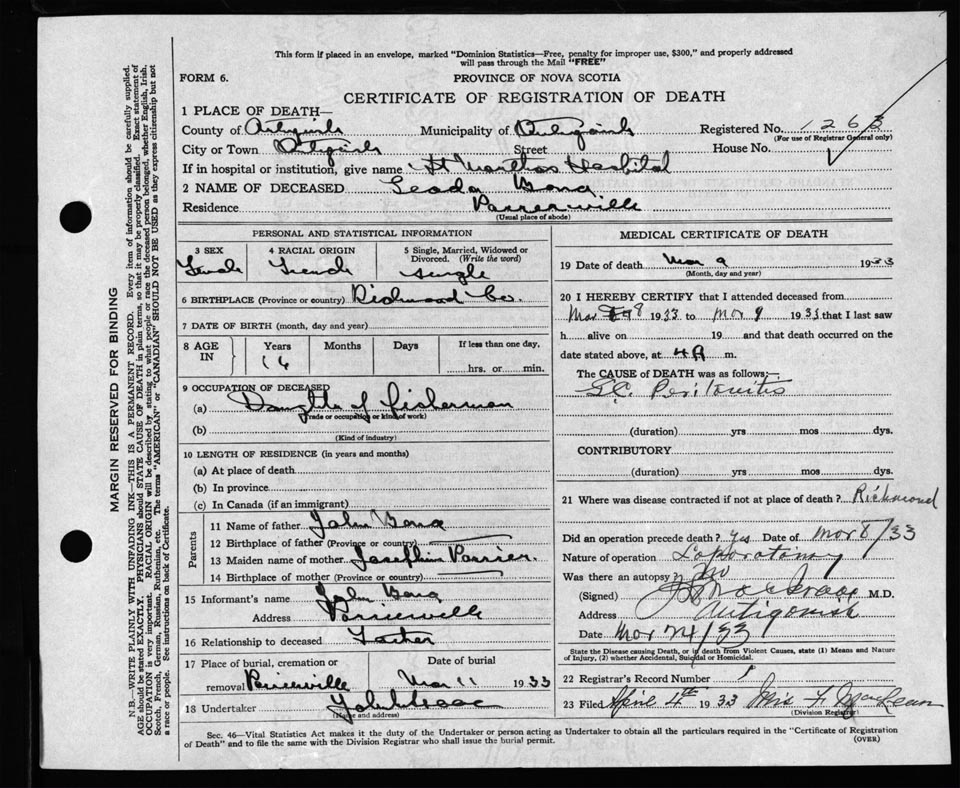 This form if placed in an envelope, marked "Dominion Statistics—Free, penalty for improper use, $300," and properly addressed
will pass through the Mail "FREE"
FORM 6.
PROVINCE OF NOVA SCOTIA
CERTIFICATE OF REGISTRATION OF DEATH
1 PLACE OF DEATH—
County of Antigonish Municipality of Antigonish Registered No. 1263
(For use of Registrar General only)
City or Town Antigonish Street House No.
If in hospital or institution, give name St Marthas Hospital
2 NAME OF DECEASED Leada Bona
Residence Poirierville
(Usual place of abode)
PERSONAL AND STATISTICAL INFORMATION
3 SEX 4 RACIAL ORIGIN 5 Single, Married, Widowed or Divorced. (Write the word)
Female French single
6 BIRTHPLACE (Province or country) Richmond Co.
7 DATE OF BIRTH (month, day and year)
8 AGE IN Years Months Days If less than one day,
16 hrs. or min.
9 OCCUPATION OF DECEASED
(a) Daughter of fisherman
(Trade or occupation or kind of work)
(b)
(Kind of industry)
10 LENGTH OF RESIDENCE (in years and months)
(a) At place of death
(b) In province
(c) In Canada (if an immigrant)
Parents
11 Name of father John Bona
12 Birthplace of father (Province or country)
13 Maiden name of mother Josephin Poirrier.
14 Birthplace of mother (Province or country)
15 Informant's name John Bona
Address Poirierville
16 Relationship to deceased Father
17 Place of burial, cremation or Date of burial
removal Poirierville Mar 11 1933
18 Undertaker John Isaac
(Name and address)
MEDICAL CERTIFICATE OF DEATH
19 Date of death Mar 9 1933
(Month, day and year)
20 I HEREBY CERTIFY that I attended deceased from
Mar 8 1933 to Mar 9 1933 that I last saw
h alive on 19 and that death occurred on the
date stated above, at 4A m.
The CAUSE of DEATH was as follows:
Peritonitis
(duration) yrs mos dys.
CONTRIBUTORY
(duration) yrs mos dys.
21 Where was disease contracted if not at place of death? Richmond
Did an operation precede death? Yes Date of Mar 8/33
Nature of operation Laporatomy
Was there an autopsy? No
(Signed) M.D.
Address Antigonish
Date Mar 24/33
State the Disease causing Death, or in death from Violent Causes, state (1) Means and Nature
of Injury, (2) whether Accidental, Suicidal or Homicidal.
22 Registrar's Record Number
23 Filed April 4th 1933 Mrs F MacLean
(Division Registrar)
Sec. 46—Vital Statistics Act makes it the duty of the Undertaker or person acting as Undertaker to obtain all the particulars required in the "Certificate of Registration
of Death" and to file the same with the Division Registrar who shall issue the burial permit.
(OVER)
MARGIN RESERVED FOR BINDING
N.B.—WRITE PLAINLY WITH UNFADING INK—THIS IS A PERMANENT RECORD. Every item of information should be carefully supplied.
AGE should be stated EXACTLY. PHYSICIANS should STATE CAUSE OF DEATH in plain terms, so that it may be properly classified. Exact statement of
OCCUPATION is very important. RACIAL ORIGIN will be described by stating to what people or race the deceased person belonged, whether English, Irish,
Scotch, French, German, Russian, Ruthenian, etc. The terms "AMERICAN" or "CANADIAN" SHOULD NOT BE USED as they express citizenship but not
a race or people. See instructions on back of Certificate.